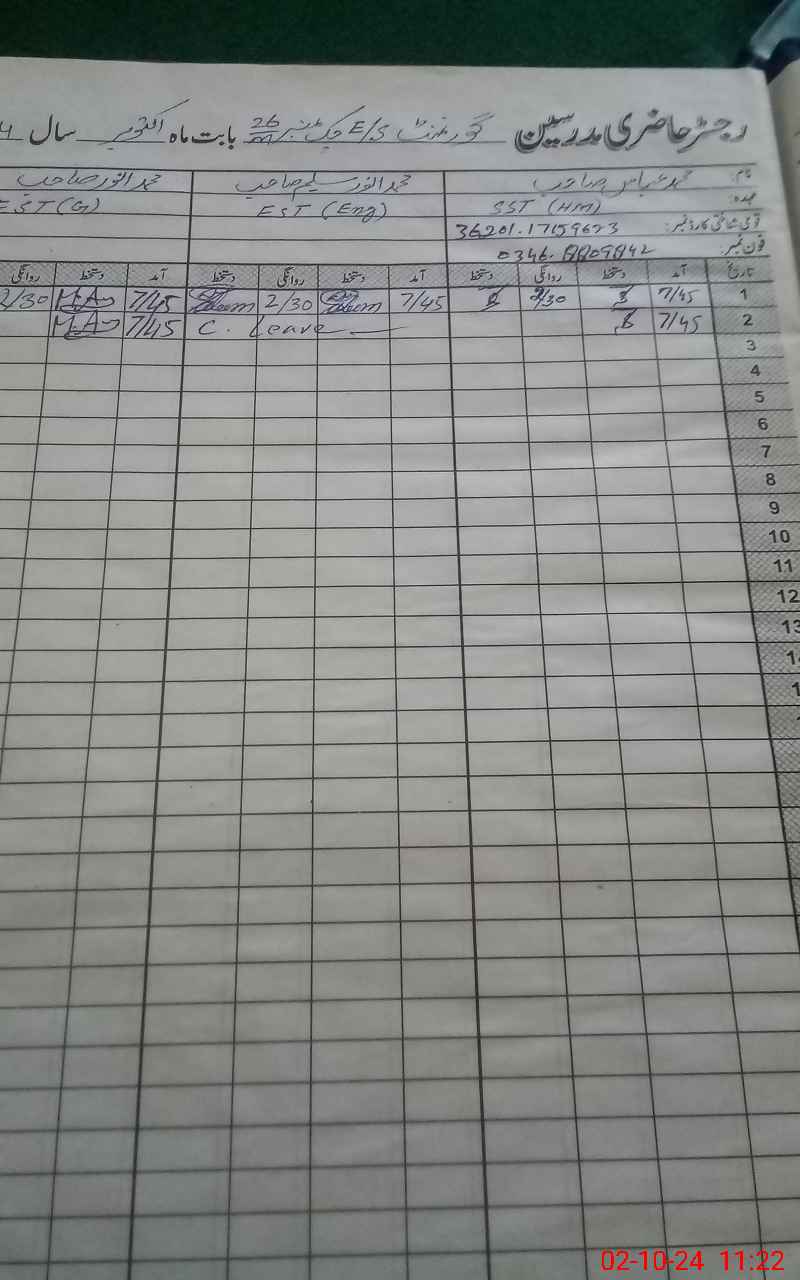 رجسٹر حاضری مدرسین گورنمنٹ E/S چک نمبر 26 بابت ماہ اکتوبر سال
نام: محمد عباس صاحب محمد انور سلیم صاحب محمد انور صاحب
عہدہ: SST (HM) EST (Eng) EST (G)
قومی شناختی کارڈ نمبر:
فون نمبر:
تاریخ آمد دستخط روانگی دستخط آمد دستخط روانگی دستخط آمد دستخط روانگی
1 7/45 2/30 7/45 2/30 7/45 2/30
2 7/45 C. Leave 7/45
3
4
5
6
7
8
9
10
11
12
13
02-10-24 11:22